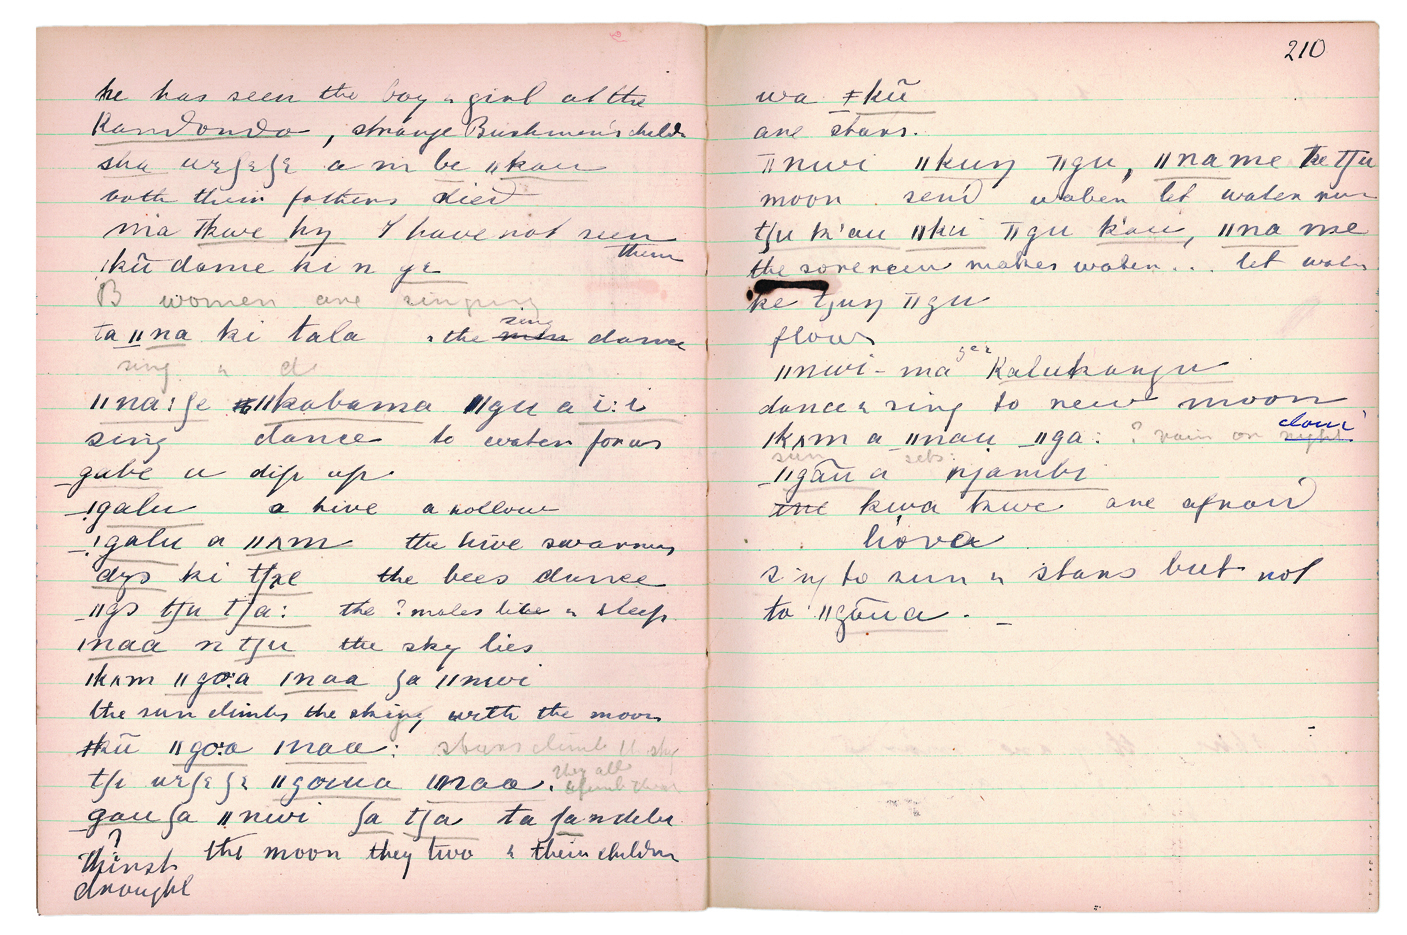 he has seen the boy & girl at the
Kandondo, strange Bushmen's childr
sha wɛʃɛʃɛ a m be ǁkau
both their fathers died
ma tkwe hŋ I have not seen
them
!kū dame ki n ge
B women are singing
ta ǁna ki tala & the sing dance
sing & d
ǁna:ʃe ǁkabama ǁgu a i:i
sing dance to water for us
gabe u dip up
!galu a hive a hollow
!galu a ǁʌm the hive swarms
dzɔ ki tʃxe the bees dance
ǁgɔ tʃu tʃa: the ? males lie & sleep
ǀnaa n tʃu the sky lies
ǀkʌm ǁgo:a ǀnaa ʃa ǁnwi
the sun climbs the sky with the moon
ǂkū ǁgo:a ǀnaa: stars climb sky
tʃi wɛʃɛʃɛ ǁgowa ǀnaa. they all climb
gau ʃa ǁnwi ʃa tʃa ta ʃandebe
? thirst the moon they two & their children
drought
210
wa ǂkū
are stars.
ǁnwi ǁkuŋ ǁgu, ǁna me ke tʃu
moon send water let water run
tʃu k'au ǁki ǁgu kau, ǁna me
the sorerer makes water... let water
ke tʃuŋ ǁgu
flow
ǁnwi-ma Kalukangu
dance & sing to new moon
ǀkʌm a ǁnau ǁga: ? rain or night
sun sets
ǁgāu a njambi
kwa kwe are afraid
hova
sing to sun & stars but not
to ǁgāua. _